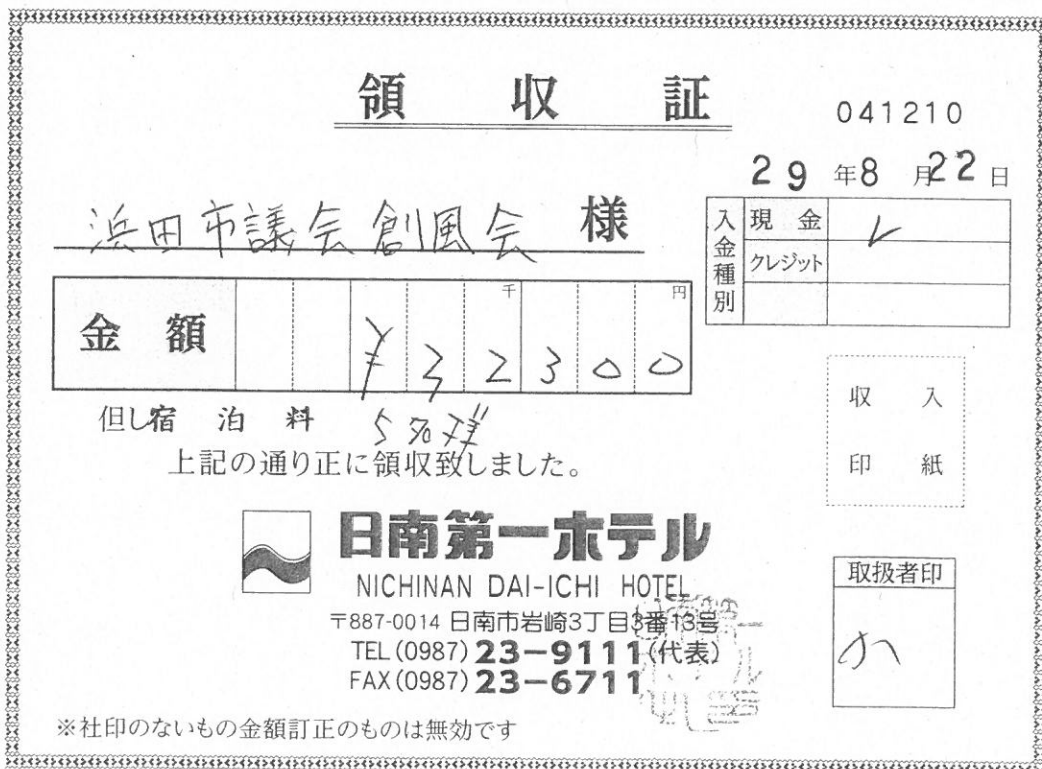 領収証
041210
29年8月22日
浜田市議会創風会 様
入金種別
現金 レ
クレジット
金額 千 円
¥32300
但し宿泊料 5名様
上記の通り正に領収致しました。
収入
印紙
日南第一ホテル
NICHINAN DAI-ICHI HOTEL
〒887-0014 日南市岩崎3丁目3番13号
TEL(0987)23-9111(代表)
FAX(0987)23-6711
取扱者印
※社印のないもの金額訂正のものは無効です